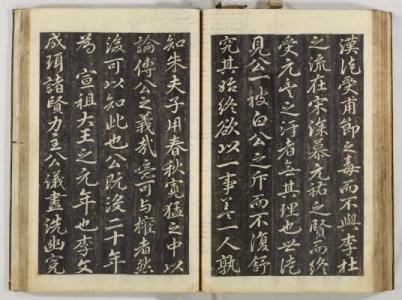 漢說愛甫節之毒而不與李杜
之流在宋深慕元祐之賢而終
受元豊之汙者無其理也世說
見公一被白公之斥而不復舒
究其始終欲以一事善一人孰
知朱夫子用春秋寬猛之中以
論傅公之義哉意可與權者然
後可以知此也公旣沒二十年
為 宣祖大王之元年也李文
成珥諸賢力主公議盡洗幽寃